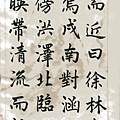 而近曰徐林
焉戍南對涵
傍洪澤北臨
暎帶清流而